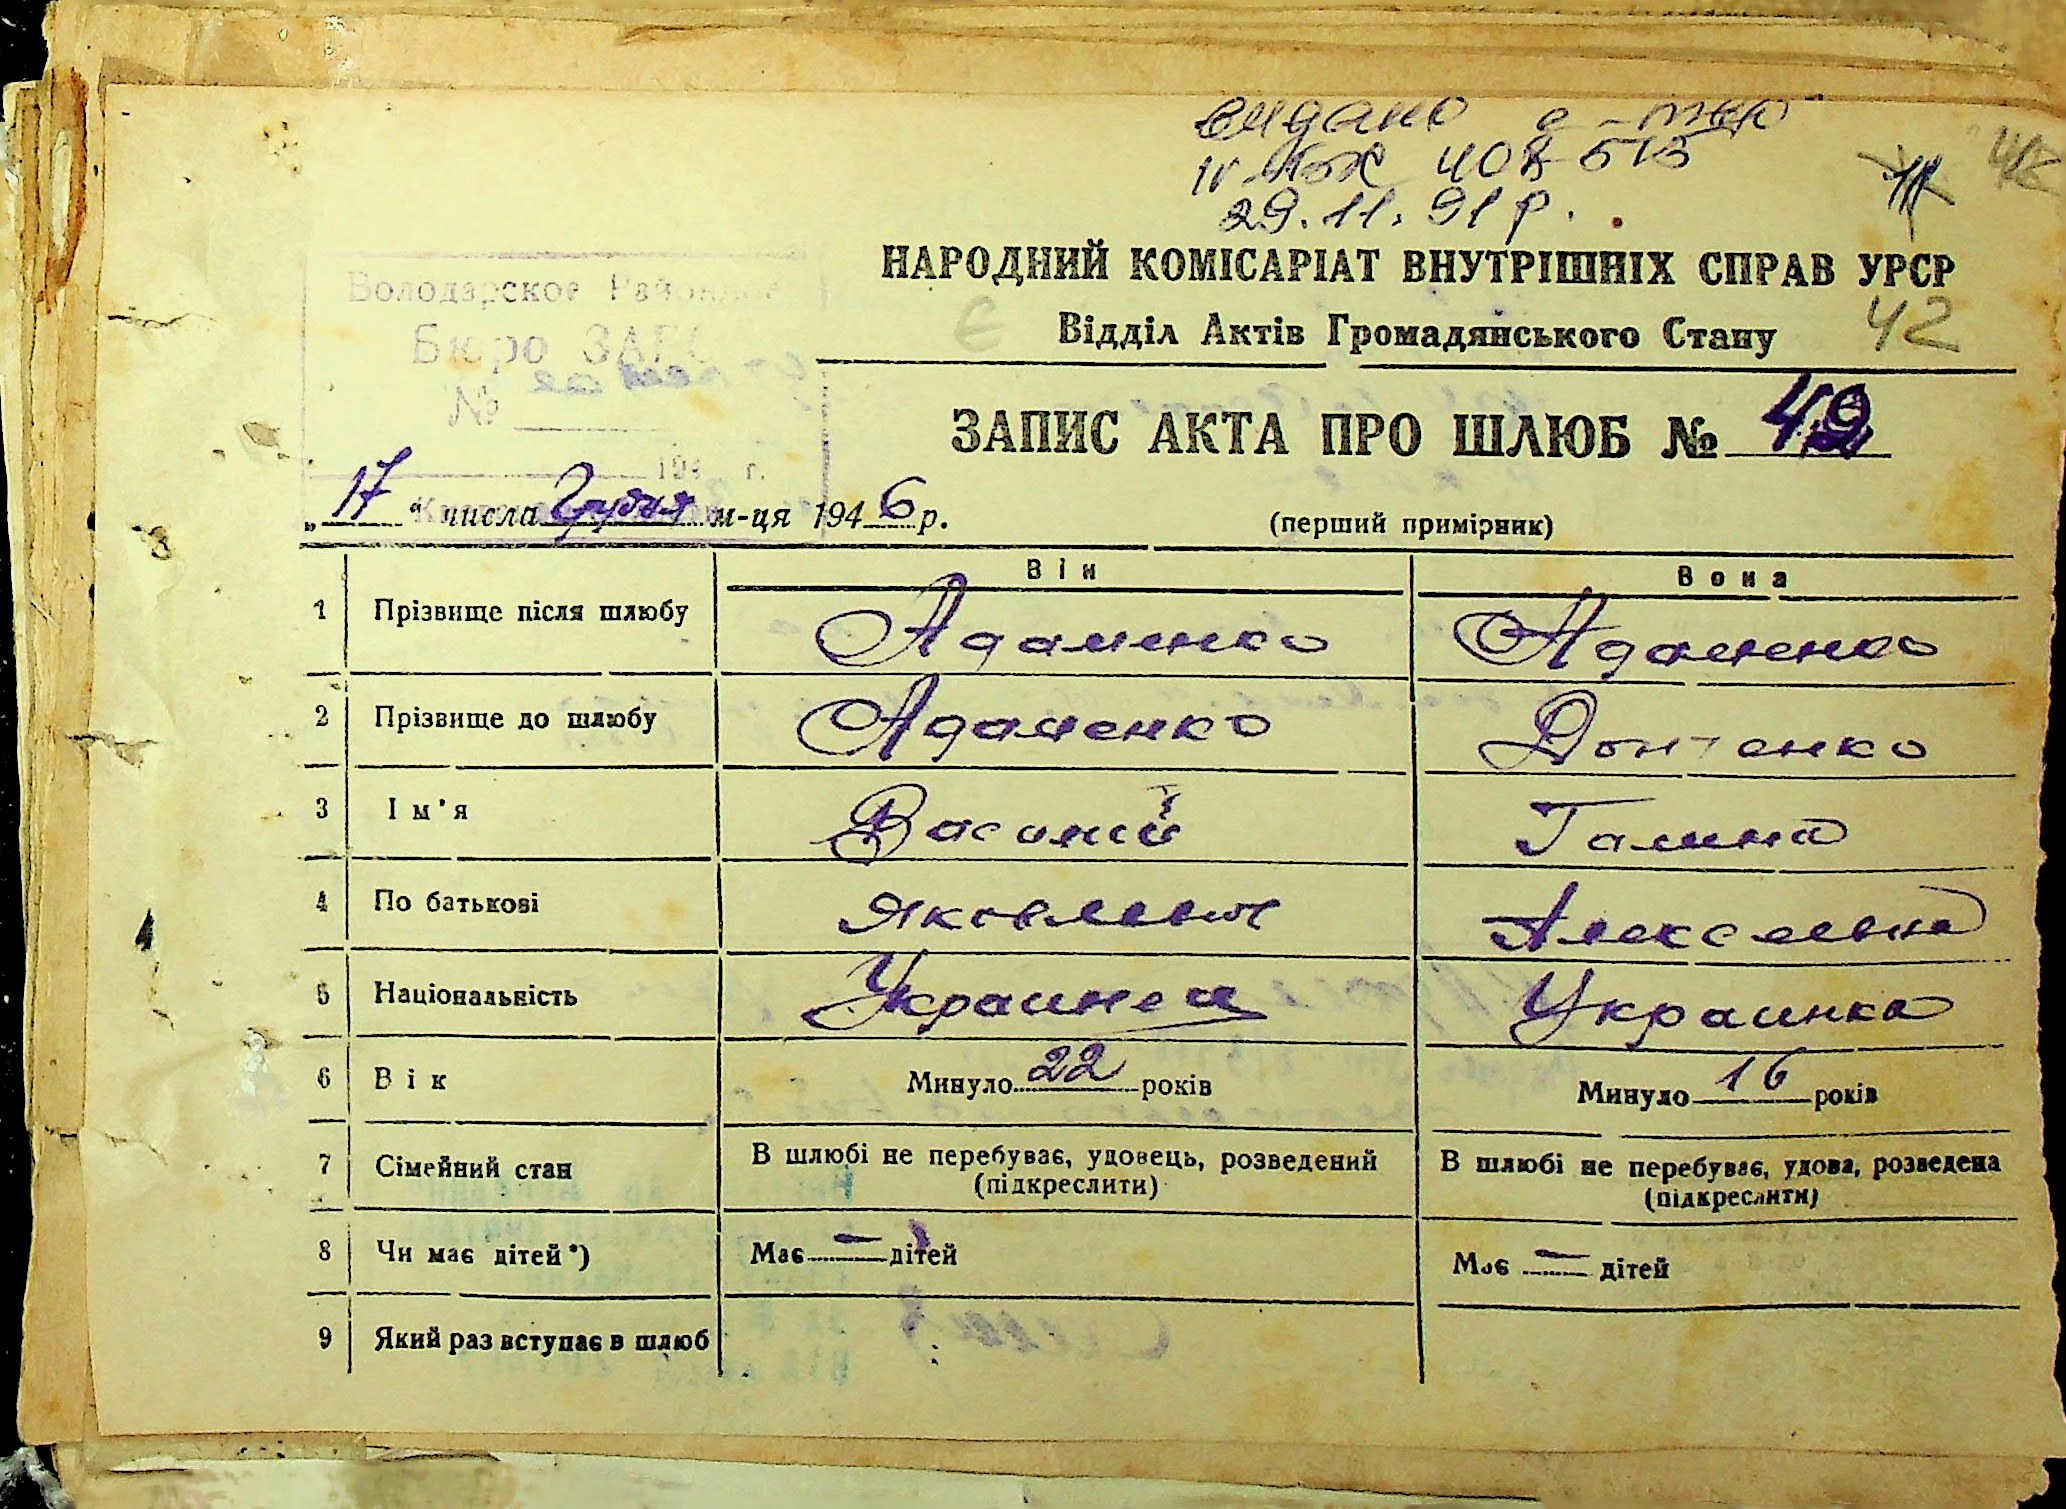 видано с-тво
IV-БК 408513
29.11.91 р.
42
НАРОДНИЙ КОМІСАРІАТ ВНУТРІШНІХ СПРАВ УРСР
Відділ Актів Громадянського Стану
є
42
Володарское Районное
Бюро ЗАГС
№
194 г.
ЗАПИС АКТА ПРО ШЛЮБ № 42
„17“ числа Грудня м-ця 1946 р.
(перший примірник)
Він Вона
1 Прізвище після шлюбу Адаменко Адаменко
2 Прізвище до шлюбу Адаменко Донченко
3 Ім'я Василий Галина
4 По батькові Яковлевич Алексеевна
5 Національність Украинец Украинка
6 Вік Минуло 22 років Минуло 16 років
7 Сімейний стан В шлюбі не перебуває, удовець, розведений (підкреслити) В шлюбі не перебуває, удова, розведена (підкреслити)
8 Чи має дітей*) Має — дітей Має — дітей
9 Який раз вступає в шлюб